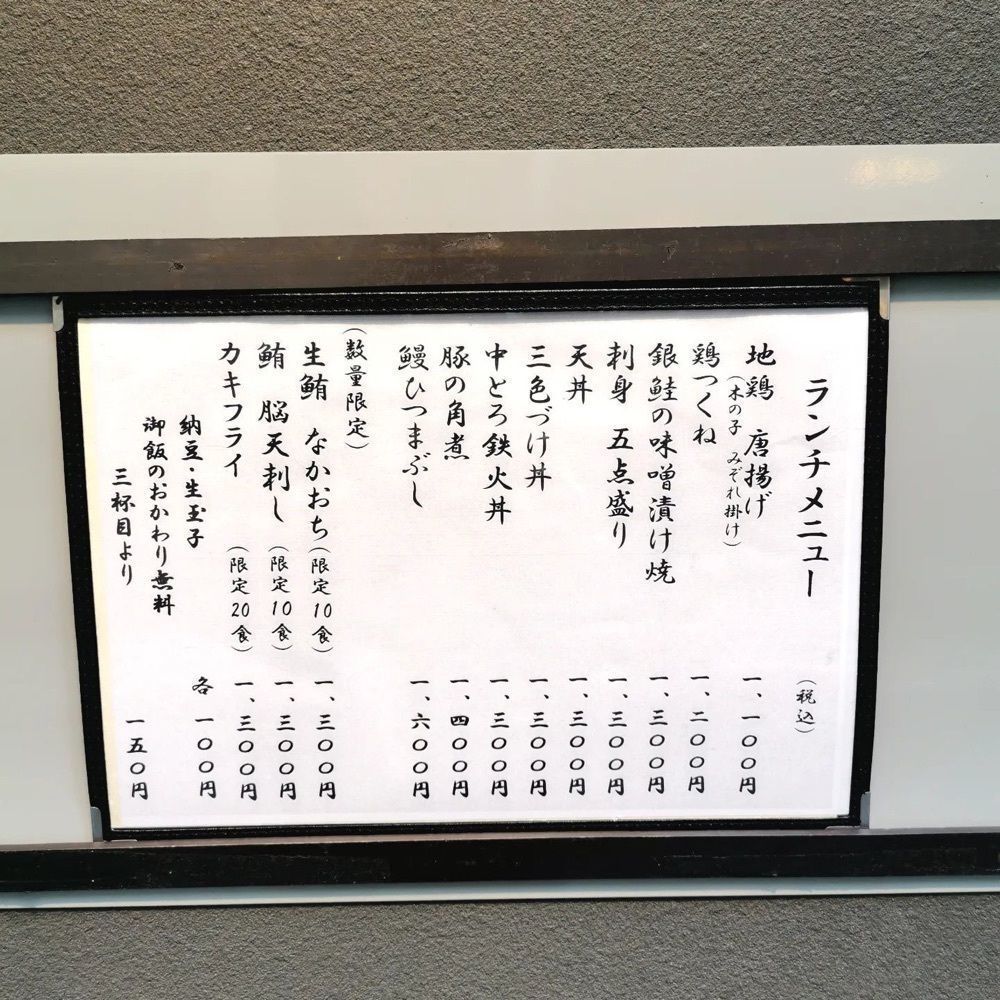 ランチメニュー (税込)
地鶏 唐揚げ 一、一〇〇円
(木の子 みぞれ掛け)
鶏つくね 一、二〇〇円
銀鮭の味噌漬け焼 一、三〇〇円
刺身 五点盛り 一、三〇〇円
天丼 一、三〇〇円
三色づけ丼 一、三〇〇円
中とろ鉄火丼 一、三〇〇円
豚の角煮 一、四〇〇円
鰻ひつまぶし 一、六〇〇円
(数量限定)
生鮪 なかおち (限定10食) 一、三〇〇円
鮪 脳天刺し (限定10食) 一、三〇〇円
カキフライ (限定20食) 一、三〇〇円
納豆・生玉子 各 一〇〇円
御飯のおかわり無料
三杯目より 一五〇円